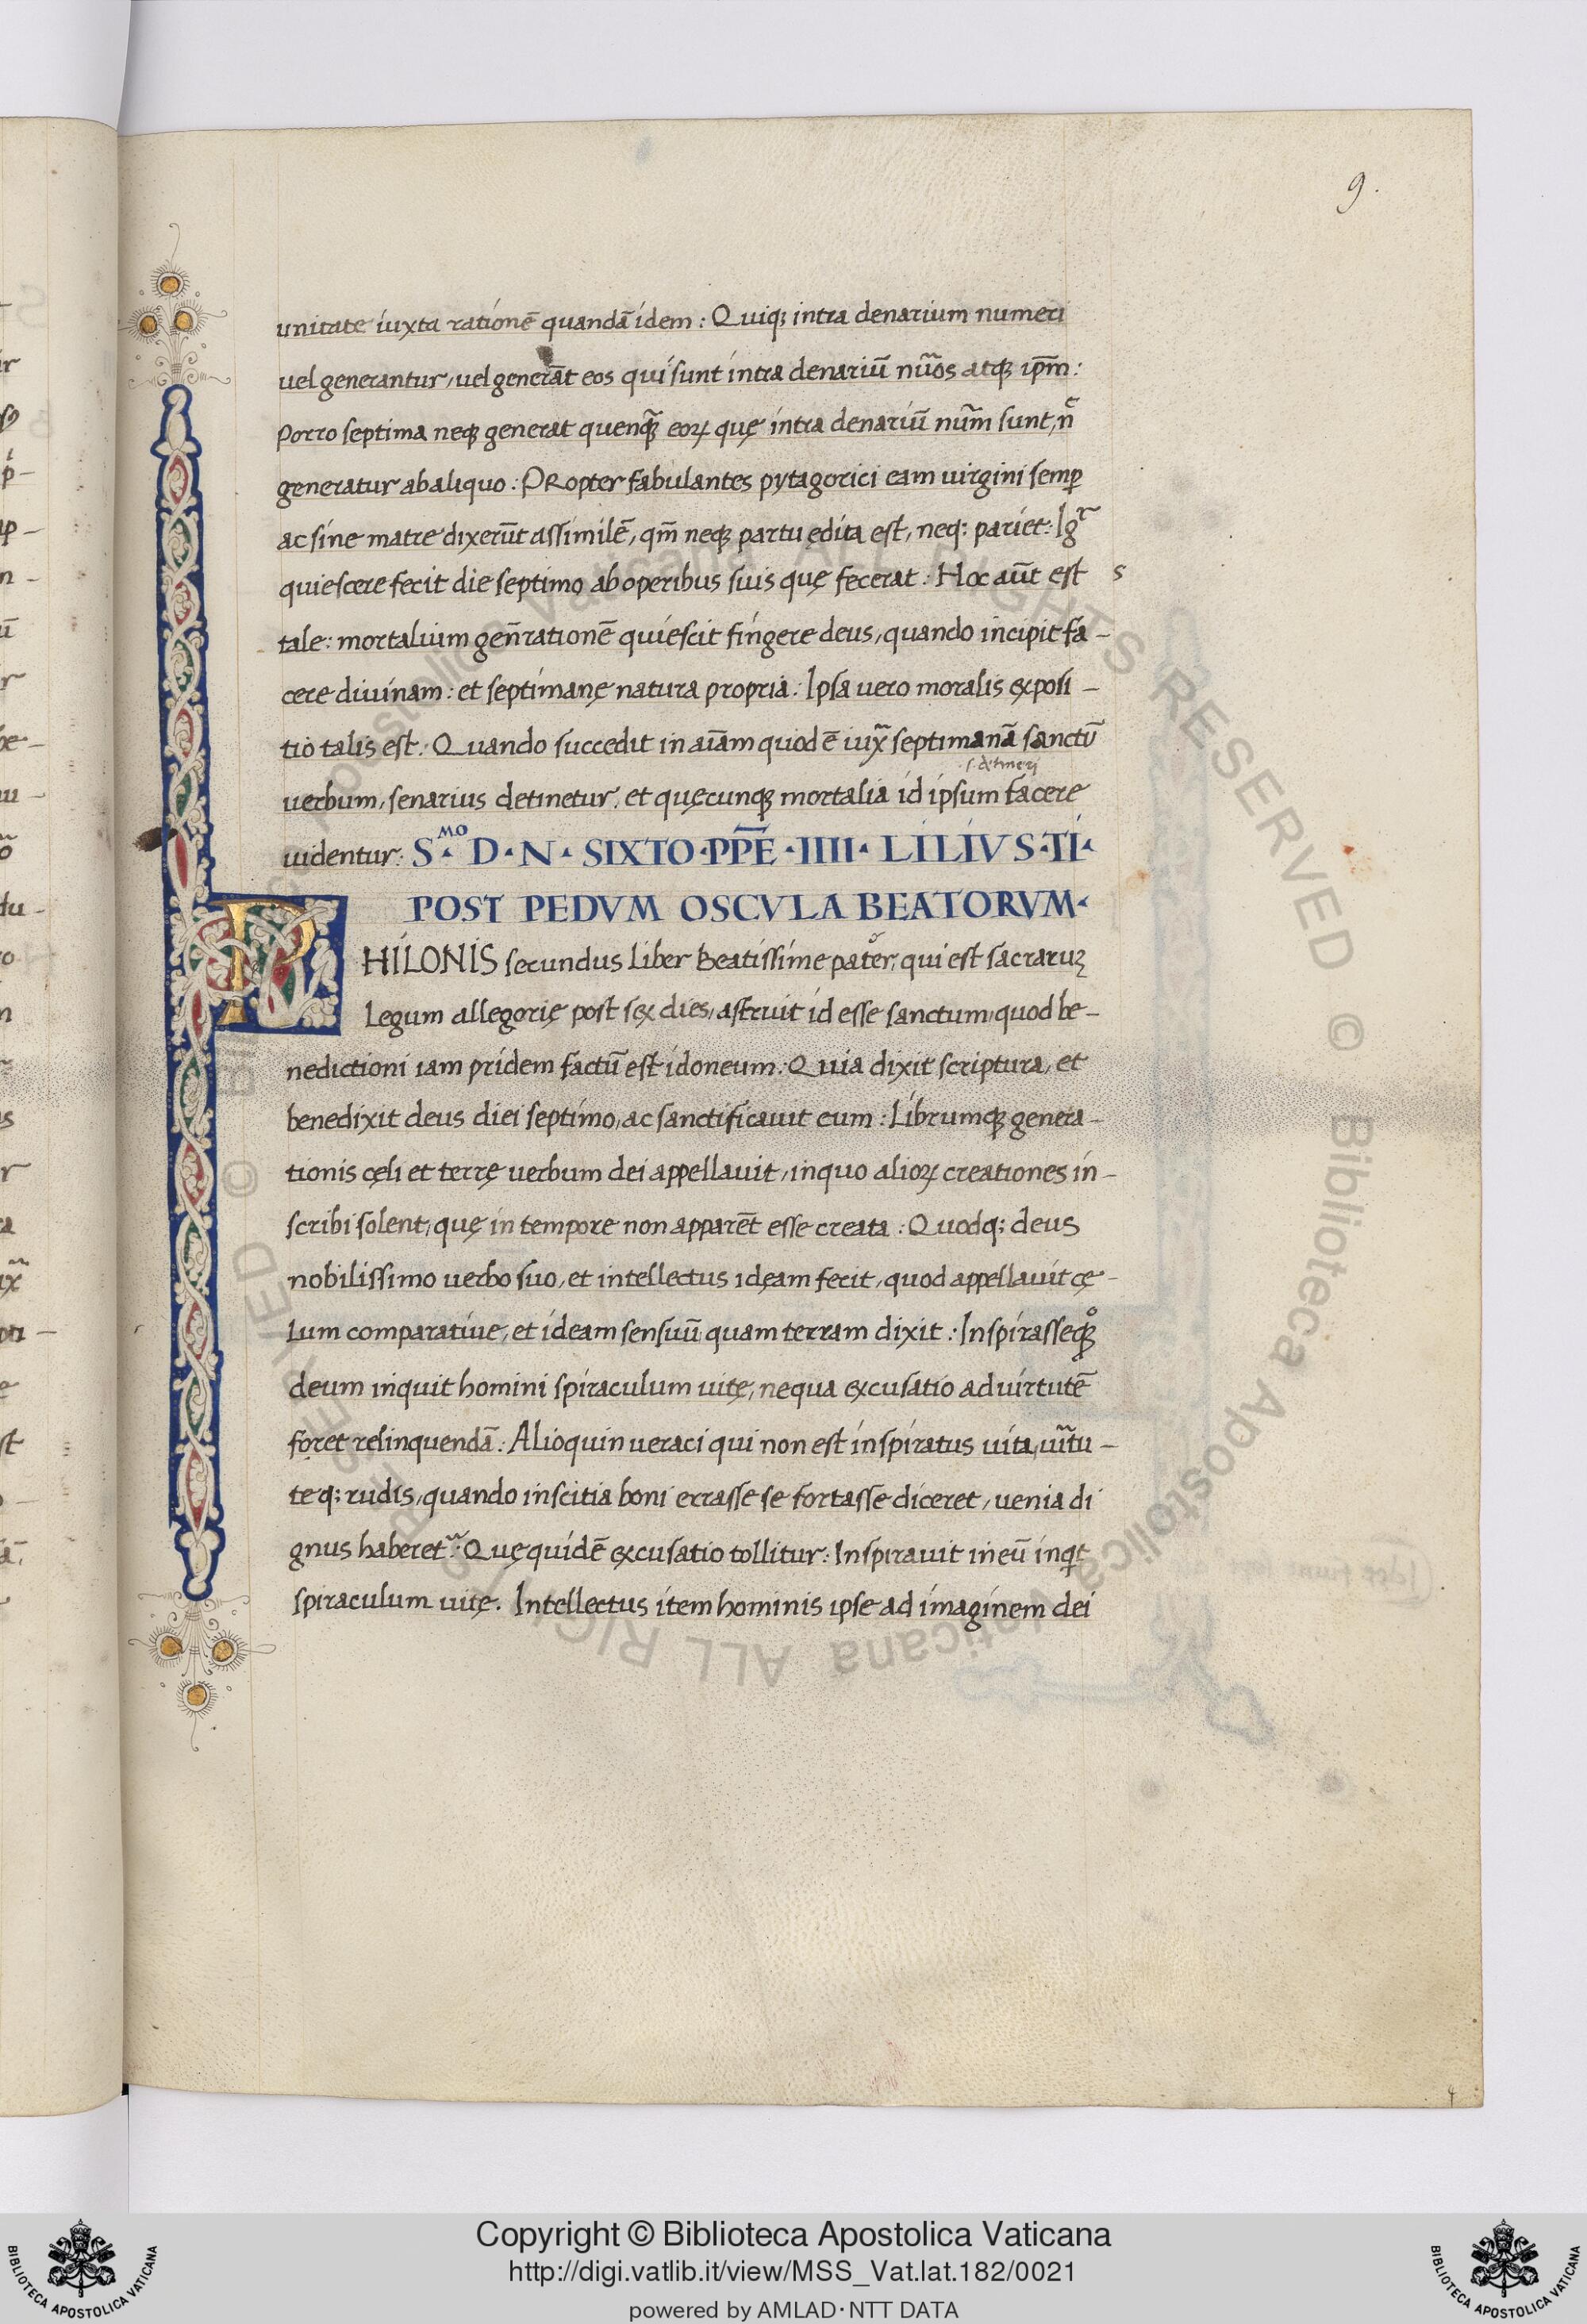 9.
unitate iuxta rationē quandā idem: Quiqȝ intra denarium numeri
uel generantur, uel generāt eos qui sunt intra denariū nũos atqȝ ip̄m:
Porro septima neqȝ generat quenqȝ̃ eoꝝ quę intra denariū nũm sunt, n̄c
generatur ab aliquo: PRopter fabulantes pytagorici eam uirgini semꝑ
ac sine matre dixerūt assimilē, qm̄ neqȝ partu edita est, neq: pariet: Igr̃
quiescere fecit die septimo ab operibus suis quę fecerat: Hoc aūt est s
tale: mortalium geñrationē quiescit fingere deus, quando incipit fa-
cere diuinam: et septimanę natura propria: Ipsa uero moralis exposi-
tio talis est: Quando succedit in aīam quod ē iux̃ septimanā sanctū
s. detineri
uerbum, senarius detinetur, et quęcunqȝ mortalia id ipsum facere
uidentur: S.MO D·N· SIXTO·PP̄E·IIII· LILIVS·TI·
POST PEDVM OSCVLA BEATORVM·
PHILONIS secundus liber Beatissime pater, qui est sacraruȝ
Legum allegorię post sex dies, astruit id esse sanctum, quod be-
nedictioni iam pridem factū est idoneum: Quia dixit scriptura, et
benedixit deus diei septimo, ac sanctificauit eum: Librumqȝ genera-
tionis cęli et terrę uerbum dei appellauit, inquo alioꝝ creationes in-
scribi solent, quę in tempore non apparēt esse creata: Quodq; deus
nobilissimo uerbo suo, et intellectus idęam fecit, quod appellauit cę-
lum comparatiue, et ideam sensuū quam terram dixit: Inspirasseqȝ
deum inquit homini spiraculum uitę, nequa excusatio ad uirtutē
foret relinquendā: Alioquin ueraci qui non est inspiratus uita, uĩtu-
teq; rudis, quando inscitia boni errasse se fortasse diceret, uenia di
gnus haberet̃: Quę quidē excusatio tollitur: Inspirauit in eū inqͥt
spiraculum uitę. Intellectus item hominis ipse ad imaginem dei
Copyright © Biblioteca Apostolica Vaticana
http://digi.vatlib.it/view/MSS_Vat.lat.182/0021
powered by AMLAD·NTT DATA